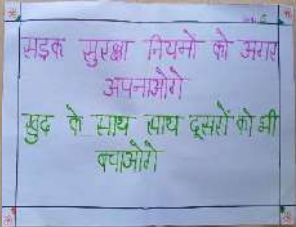 सड़क सुरक्षा नियमों को अगर
अपनाओगे
खुद के साथ साथ दूसरों को भी
बचाओगे